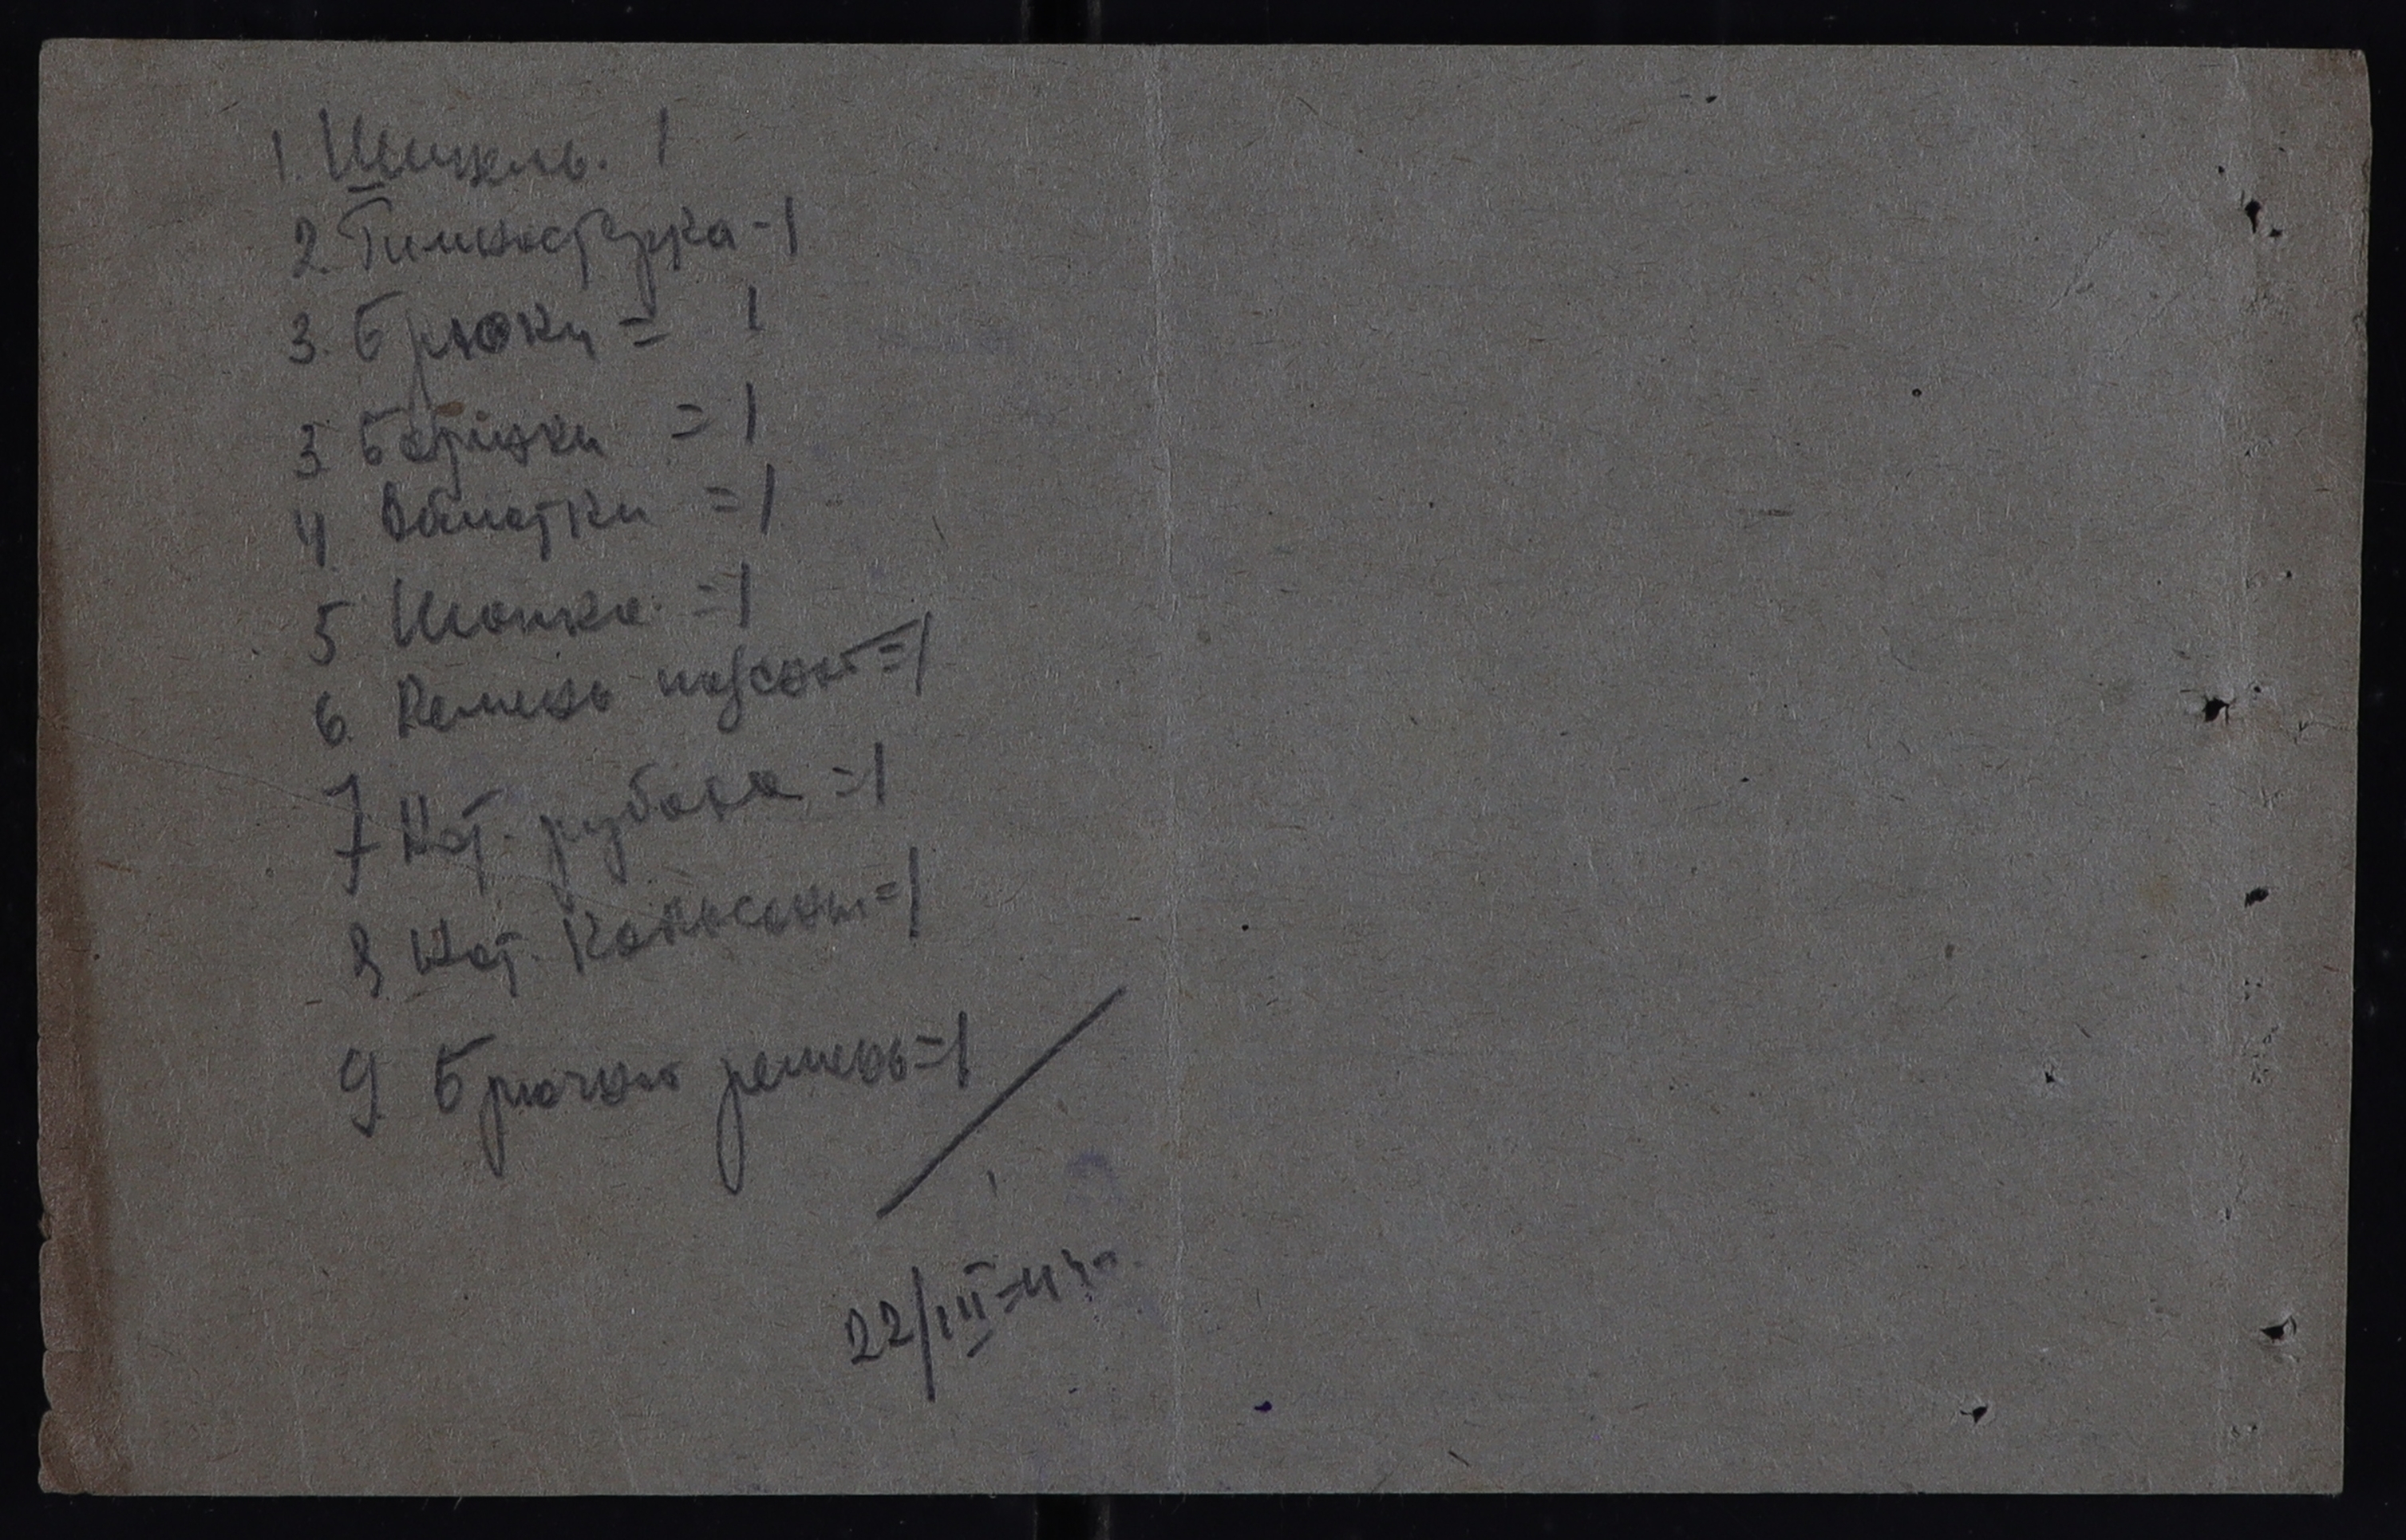 1. Шинель. 1
2. Гимнастерка - 1
3. Брюки = 1
3 Ботинки = 1
4 Обмотки = 1
5 Шапка. = 1
6. Ремень поясной = 1
7 Нат. рубаха = 1
8 Нат. Кальсоны = 1
9. Брючной ремень = 1
22/III-43г.